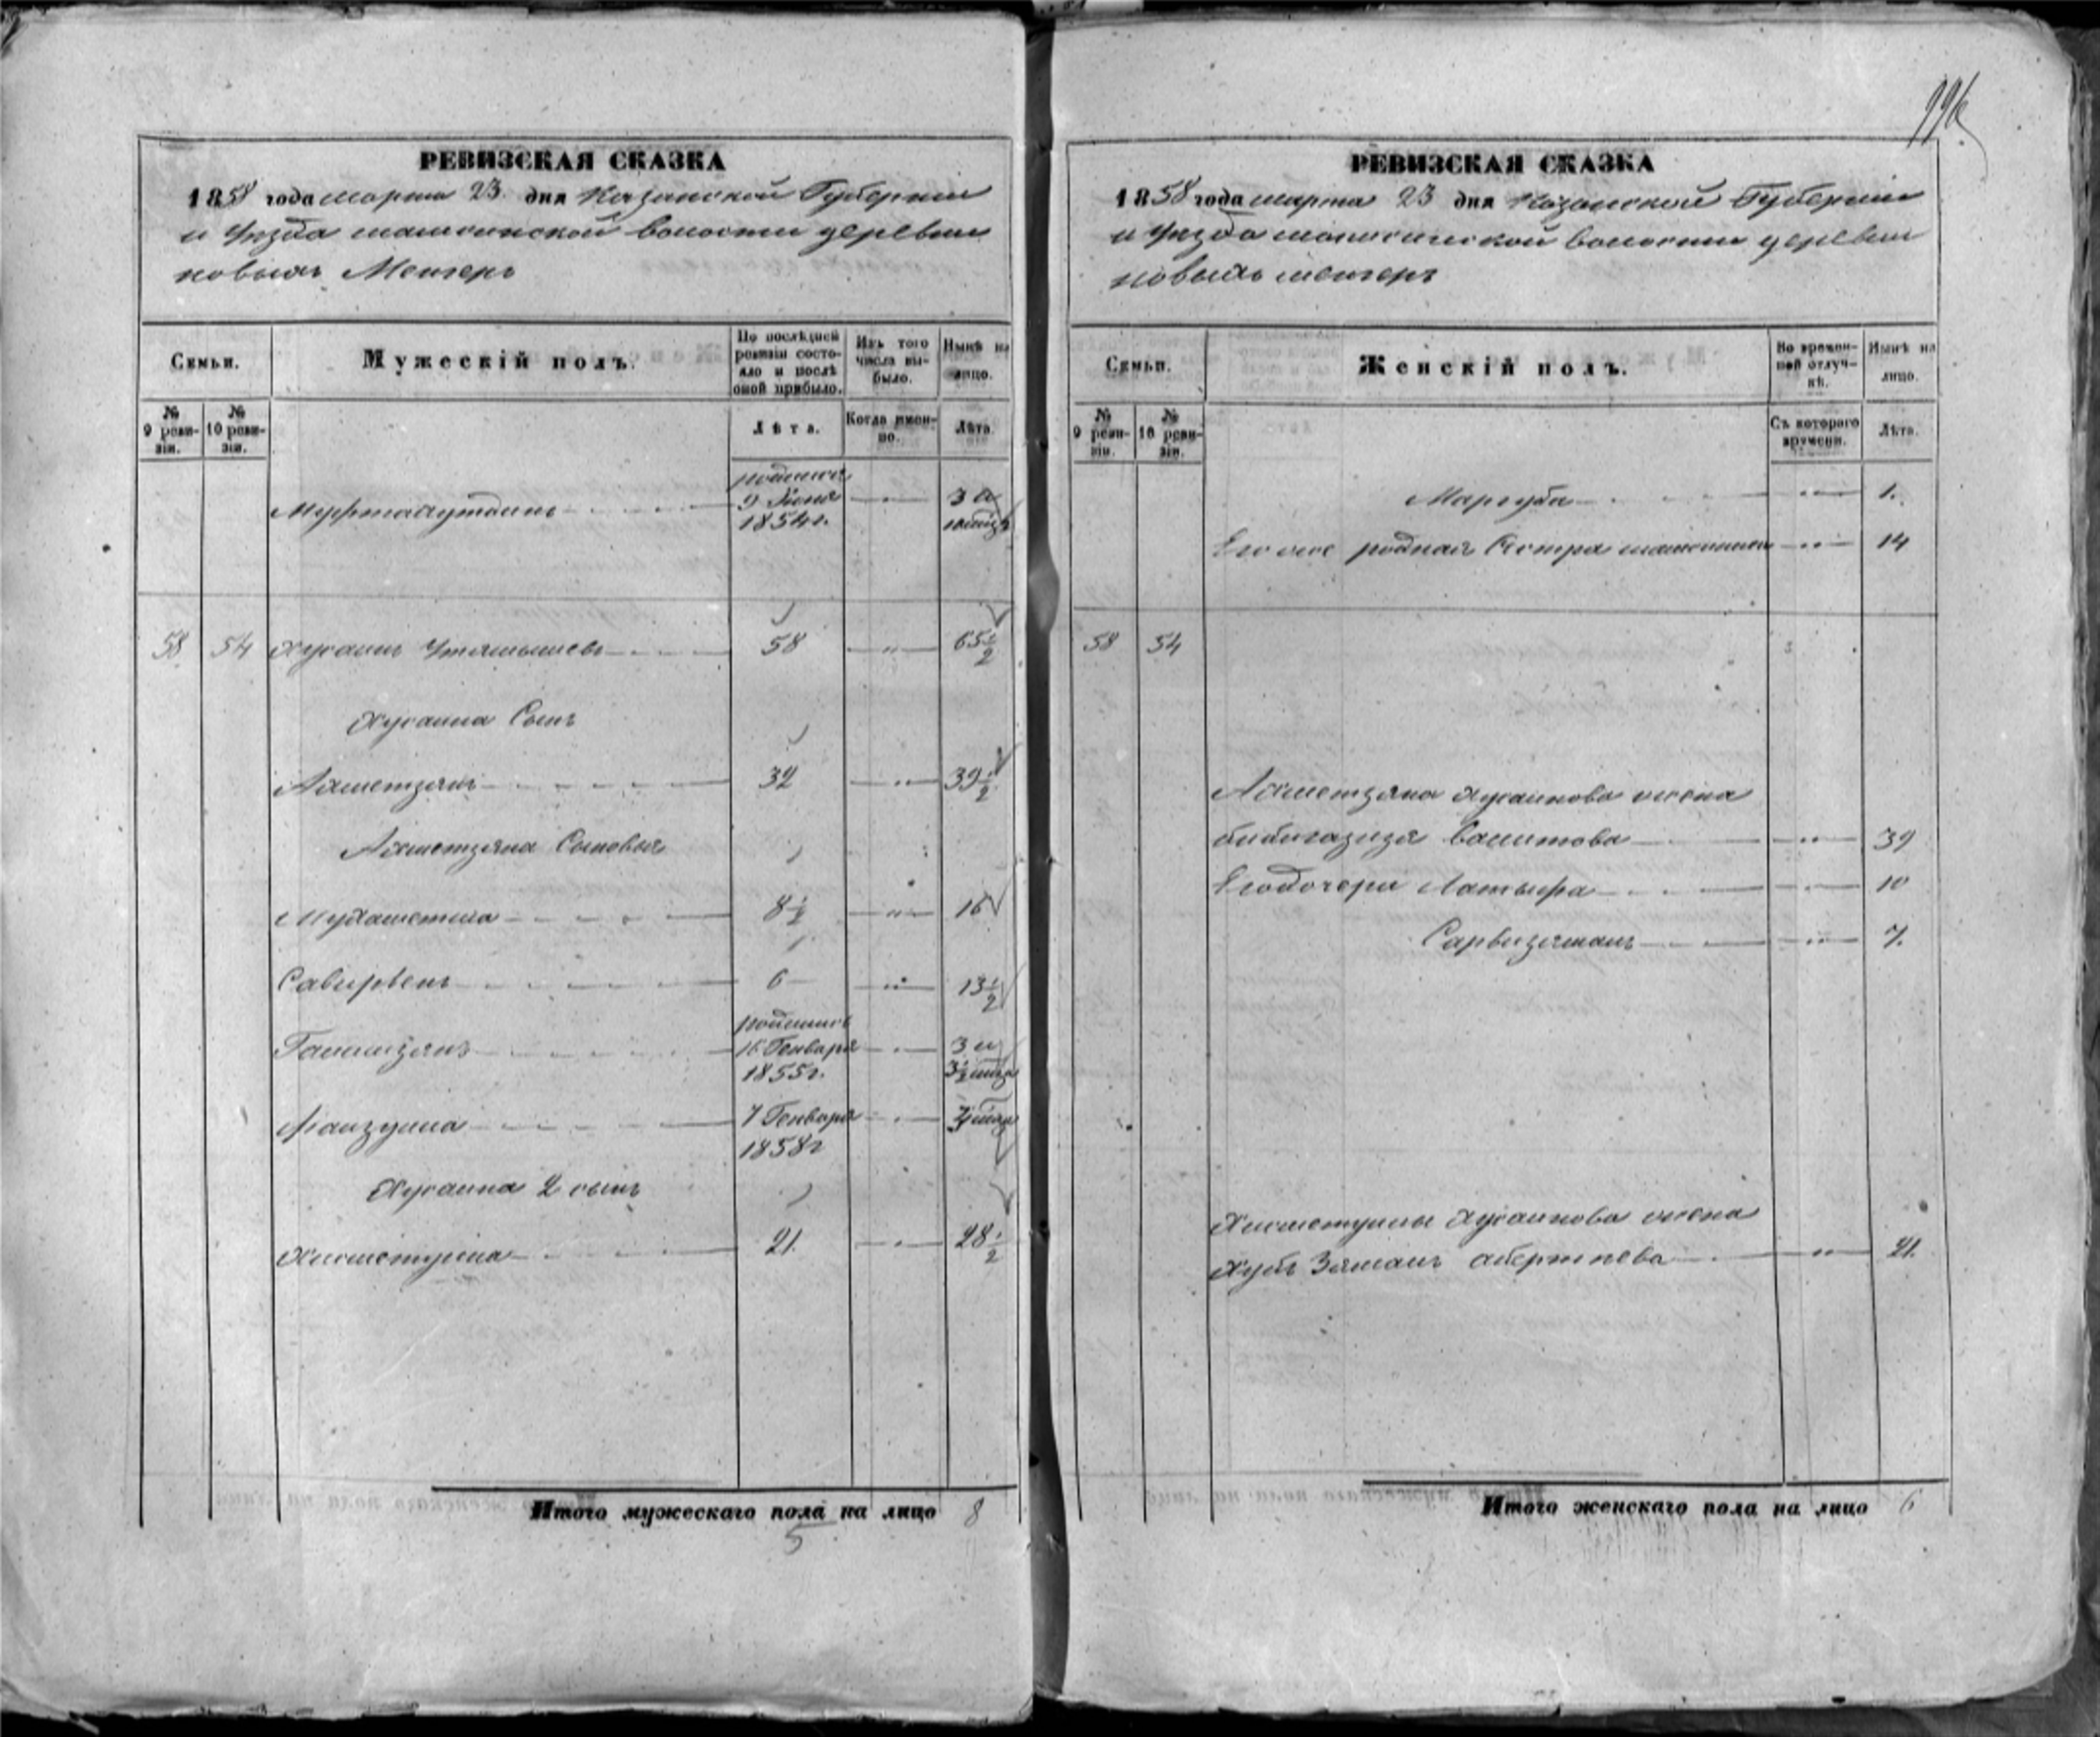 РЕВИЗСКАЯ СКАЗКА
1858 года марта 23 дня Казанской Губернии
и Уезда машинской волости деревни
новыхъ Менгеръ
Семьи.
Мужескій полъ.
По послѣдней ревизіи состояло и послѣ оной прибыло.
Изъ того числа выбыло.
Нынѣ на лицо.
№ 9 ревизіи.
№ 10 ревизіи.
Лѣта.
Когда именно.
Лѣта.
родился 9 1854г. 3 и
58 54 Хусаинъ Утямышевъ 58 " 65 1/2
Хусаина Сынъ
Ахметзянъ 32 " 39 1/2
Ахметзяна Сыновья
Мухаметша 8 1/2 " 16
6 " 13 1/2
родился 16 Генваря 1855г. 3 и 3 1/2 мца
7 Генваря 1858г
Хусаина 2 сынъ
Хисметулла 21. " 28 1/2
Итого мужескаго пола на лицо 8
5
РЕВИЗСКАЯ СКАЗКА
1858 года марта 23 дня Казанской Губерніи
и Уезда волости деревни
новыхъ менгеръ
Семьи.
Женскій полъ.
Во временной отлучкѣ.
Нынѣ на лицо.
№ 9 ревизіи.
№ 10 ревизіи.
Съ котораго времени.
Лѣта.
Маргуба " 1.
Его же родная Сестра " 14
58 54
Ахметзяна Хусаинова жена
бибигазизя Вагитова " 39
Егодочери Латыфа " 10
Сарвизяманъ " 7.
Хисметуллы Хусаинова жена
Хубъ Зяманъ " 21.
Итого женскаго пола на лицо 6